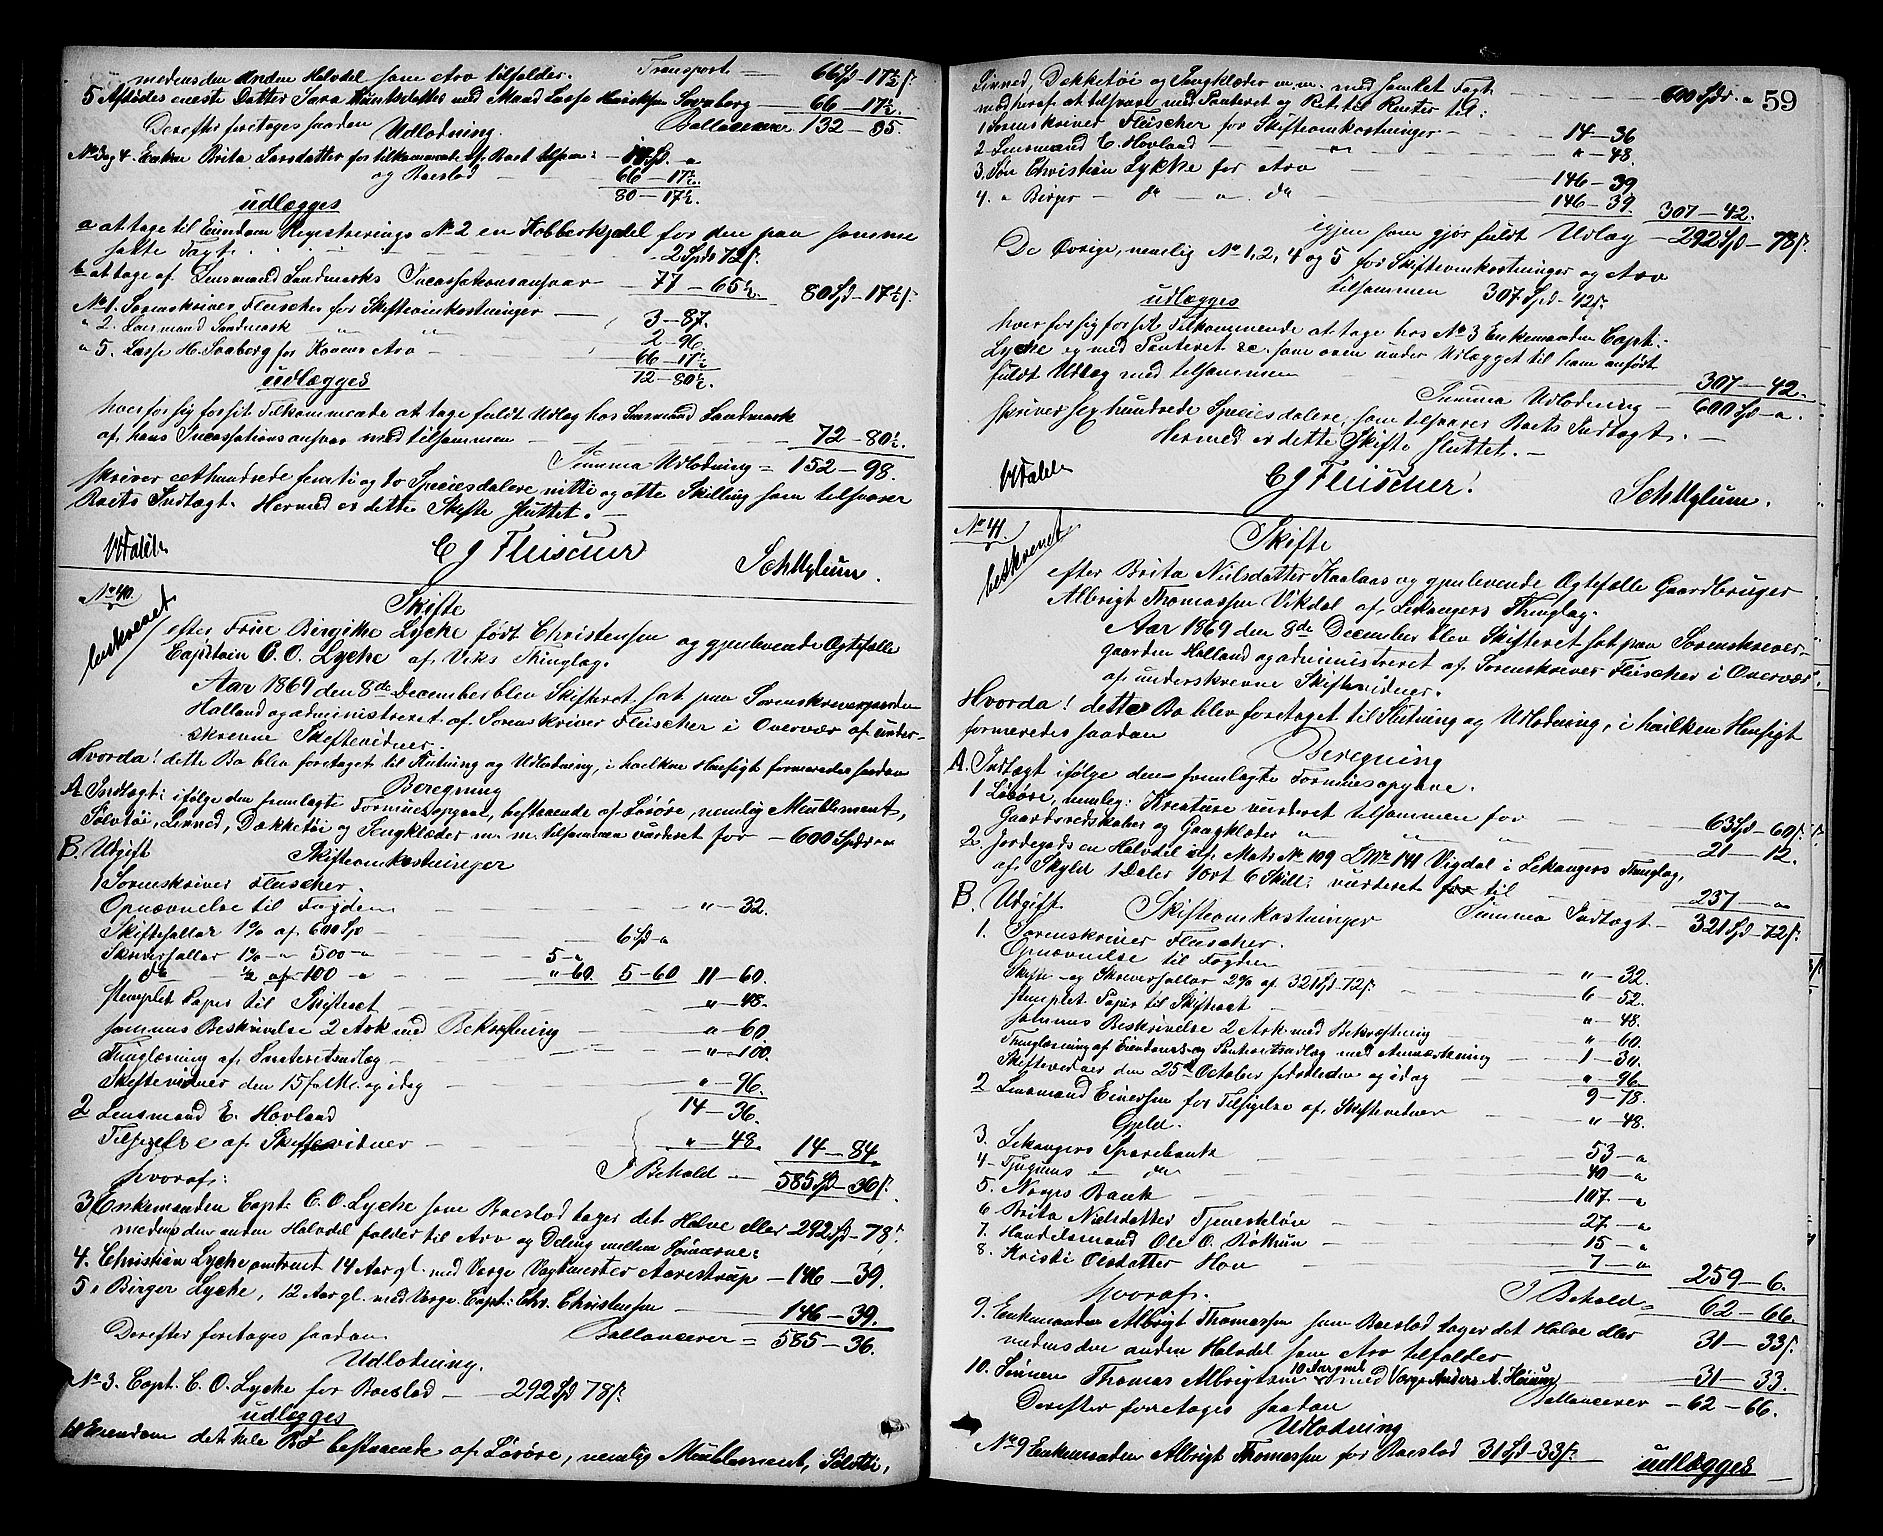 medens den anden Halvdel som Arv tilfalder. Transport — 66 Spd - 17½ s.
5 Afdødes eneste Datter Sara Knutsdatter med Mand Lasse Henriksen Svaberg — 66 — 17½.
Derefter foretages saadan Udlodning. Ballancerer 132 — 35.
No 3 og 4. Enken Brita Larsdatter for tilkommende
og Boeslod — 66 — 17½.
80 — 17½.
udlægges
a at tage til Eiendom Registrerings No 2 en Kobberkjedel for den paa samme
satte Taxt. — 2 Spd 72 s.
b at tage af Lensmand Landmarks Incassationsansvar — 77 — 65½. 80 Spd — 17½ s.
No 1. Sorenskriver Fleischer for Skifteomkostninger — 3 — 87.
" 2. Lensmand Landmark " " 2 — 96.
" 5. Lasse H. Svaberg for Konens Arv — 66 — 17½
72 — 80½.
udlægges
hver for sig for sit Tilkommende at tage fuldt Udlæg hos Lensmand Landmark
af hans Incassationsansvar med tilsammen — 72 — 80½.
Summa Udlodning = 152 — 98.
skriver eethundrede femti og to Speciesdalere, nitti og otte Skilling som tilsvarer
Boets Indtægt. Hermed er dette Skifte sluttet.
C J Fleischer
No 40.
beskrevet
Skifte
efter Frue Birgithe Lycke født Christensen og gjenlevende Ægtefælle
Capitain C. O. Lycke af Viks Thinglag.
Aar 1869 den 8de December blev Skifteret sat paa Sorenskrivergaarden
Holland og administreret af Sorenskriver Fleischer i Overvær af under-
skrevne Skiftevidner.
Hvorda! dette Bo blev foretaget til Slutning og Udlodning, i hvilken Hensigt formeredes saadan
Beregning
A Indtægt: ifølge den fremlagte Formuesopgave, bestaaende af Løsøre, nemlig Meublement,
Sølvtøi, Linned, Dækketøi og Sengklæder m. m. tilsammen vurderet for — 600 Spd "
B. Udgift Skifteomkostninger
1 Sorenskriver Fleischer.
Opnævnelse til Fogden — " — 32.
Skiftesallær 1% af 600 Spd — 6 Spd "
Skriversallær 1% " 500 " — 5 "
do — ½ af 100 " — " 60. 5 — 60 11 — 60.
stemplet Papir til Skifteact — " — 48.
sammes Beskrivelse 2 Ark med Bekræftning — " — 60
Thinglæsning af Panteretsudlæg — " — 100.
Skiftevidner den 15 f. M. og idag — " — 96.
14 — 36.
2 Lensmand E. Hovland
Tilsigelse af Skiftevidner — " — 48 14 — 84
I Behold — 585 Spd — 36 s.
hvoraf:
3 Enkemanden Capt: C. O. Lycke som Boeslod tager det Halve eller 292 Spd — 78 s.
medens den anden Halvdel falder til Arv og Deling mellem Sønnerne:
4. Christian Lycke, omtrent 14 Aar gl. med Værge Vagtmester Aarestrup — 146 — 39.
5 " Birger Lycke, 12 Aar gl. med Værge Capt: Chr. Christensen — 146 — 39.
Derefter foretages saadan Ballancerer = 585 — 36.
Udlodning.
No 3. Capt. C. O. Lycke for Boeslod — 292 Spd 78 s.
udlægges
til Eiendom det hele Bo bestaaende af Løsøre, nemlig Meublement, Sølvtøi,
59
Linned, Dækketøi og Sengklæder m. m. med samlet Taxt — 600 Spd "
mod heraf at tilsvare med Panteret og Ret til Renter til:
1 Sorenskriver Fleischer for Skifteomkostninger — 14 — 36
2 Lensmand E. Hovland — " — " — 48.
3. Søn Christian Lykke for Arv — 146 — 39
4. " Birger — do — " — do — 146 — 39. 307 — 42.
igjen som gjør fuldt Udlæg — 292 Spd — 78 s.
De Øvrige, nemlig No 1, 2, 4 og 5 for Skifteomkostninger og Arv
tilsammen 307 Spd - 42 s.
udlægges
hver for sig for sit Tilkommende at tage hos No 3 Enkemanden Capt:
Lycke og med Panteret &c. som oven under Udlægget til ham anført
fuldt Udlæg med tilsammen — 307 — 42.
Summa Udlodning — 600 Spd — ".
skriver sex hundrede Speciesdalere, som tilsvarer Boets Indtægt.
Hermed er dette Skifte sluttet.
C J Fleischer.
No 41.
beskrevet
Skifte
efter Brita Nielsdatter Kaalaas og gjenlevende Ægtefælle Gaardbruger
Albrigt Thomassen Vikdal af Lekangers Thinglag.
Aar 1869 den 8de December blev Skifteret sat paa Sorenskriver-
gaarden Holland og administreret af Sorenskriver Fleischer i Overvær
af underskrevne Skiftevidner.
Hvorda! dette Bo blev foretaget til Slutning og Udlodning, i hvilken Hensigt
formeredes saadan
Beregning
A. Indtægt ifølge den fremlagte Formuesopgave.
1 Løsøre, nemlig: Kreature vurderet tilsammen for — 63 Spd — 60 s.
Gaardsredskaber og Gangklæder " " " — 21 — 12.
2. Jordegods en Halvdel af Matr. No 109 LNr 141 Vigdal i Lekangers Thinglag,
af Skyld 1 Daler 1 Ort 6 Skill: vurderet for til — 237 — "
Summa Indtægt — 321 Spd — 72 s.
B. Udgift Skifteomkostninger
1. Sorenskriver Fleischer.
Opnævnelse til Fogden — " — 32.
Skifte- og Skriversallær 2% af 321 Spd 72 s. — 6 — 52.
stemplet Papir til Skifteact — " — 48.
sammes Beskrivelse 2 Ark med Bekræftning — " — 60.
Thinglæsning af Eiendoms- og Panteretsudlæg med Anmærkning — 1 — 30.
Skiftevidner den 25de October sidstleden og idag — " — 96
9 — 78.
2 Lensmand Einersen for Tilsigelse af Skiftevidner — " — 48.
Gjeld.
3. Lekangers Sparebank — 53 — "
4 — Tjugums — do — 40 — "
5. Norges Bank — 107 — "
6 Brita Nielsdatter Tjenesteløn — 27 — "
7. Handelsmand Ole O. Bøthun — 15 — "
8. Kristi Olsdatter Hov — 7 — "
259 — 6.
I Behold = 62 — 66.
hvoraf.
9. Enkemanden Albrigt Thomassen som Boeslod tager det Halve eller — 31 — 33 s.
medens den anden Halvdel som Arv tilfalder
10. Sønnen Thomas Albrigtsen 10 Aar gml. med Værge Anders A. — 31 — 33.
Derefter foretages saadan Ballancerer — 62 — 66.
Udlodning
No 9 Enkemanden Albrigt Thomassen for Boeslod 31 Spd — 33 s.
udlægges